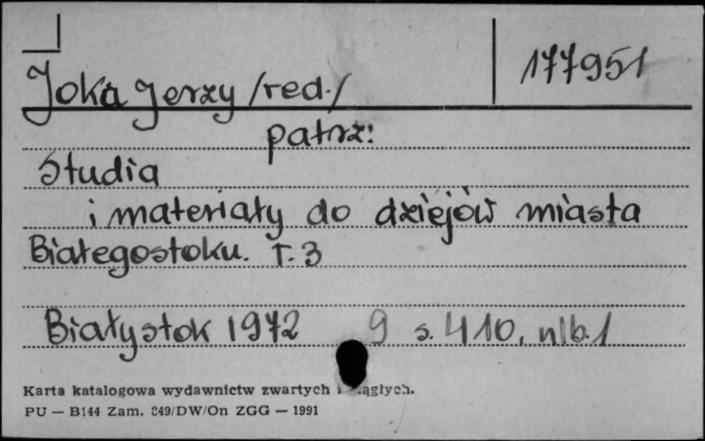 177951
Joka Jerzy /red./
patrz:
Studia
i materiały do dziejów miasta
Białegostoku. T. 3
Białystok 1972 9 s. 410, nlb. 1
Karta katalogowa wydawnictw zwartych i
PU — B144 Zam. 849/DW/On ZGG — 1991